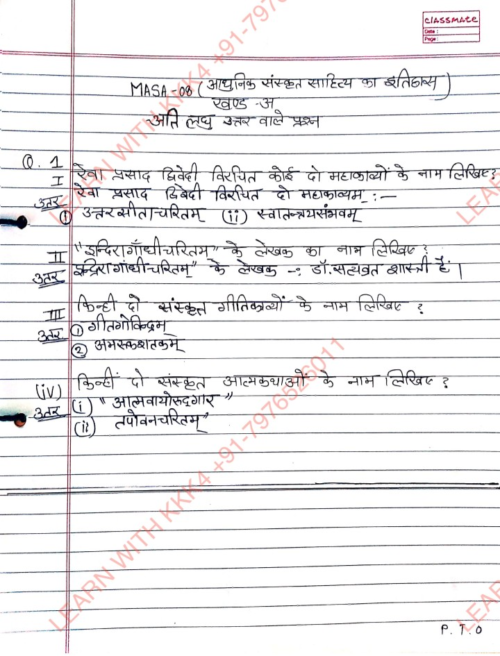 classmate
Date :
Page :
MASA-08 (आधुनिक संस्कृत साहित्य का इतिहास)
खण्ड-अ
अति लघु उत्तर वाले प्रश्न
Q. 1
I रेवा प्रसाद द्विवेदी विरचित कोई दो महाकाव्यों के नाम लिखिए?
उत्तर रेवा प्रसाद द्विवेदी विरचित दो महाकाव्यम् :—
① उत्तरसीताचरितम् (ii) स्वातन्त्र्यसंभवम्
II "इन्दिरागाँधीचरितम्" के लेखक का नाम लिखिए?
उत्तर इन्दिरागांधीचरितम्" के लेखक -: डॉ. सत्यव्रत शास्त्री हैं।
III किन्ही दो संस्कृत गीतिकाव्यों के नाम लिखिए?
उत्तर ① गीतगोविन्दम्
② अमरूकशतकम्
(iv) किन्हीं दो संस्कृत आत्मकथाओं के नाम लिखिए?
उत्तर (i) "आत्मवायोरुद्गार"
(ii) तपोवनचरितम्"
P. T. O
LEARN WITH KKK4 +91-7976526011